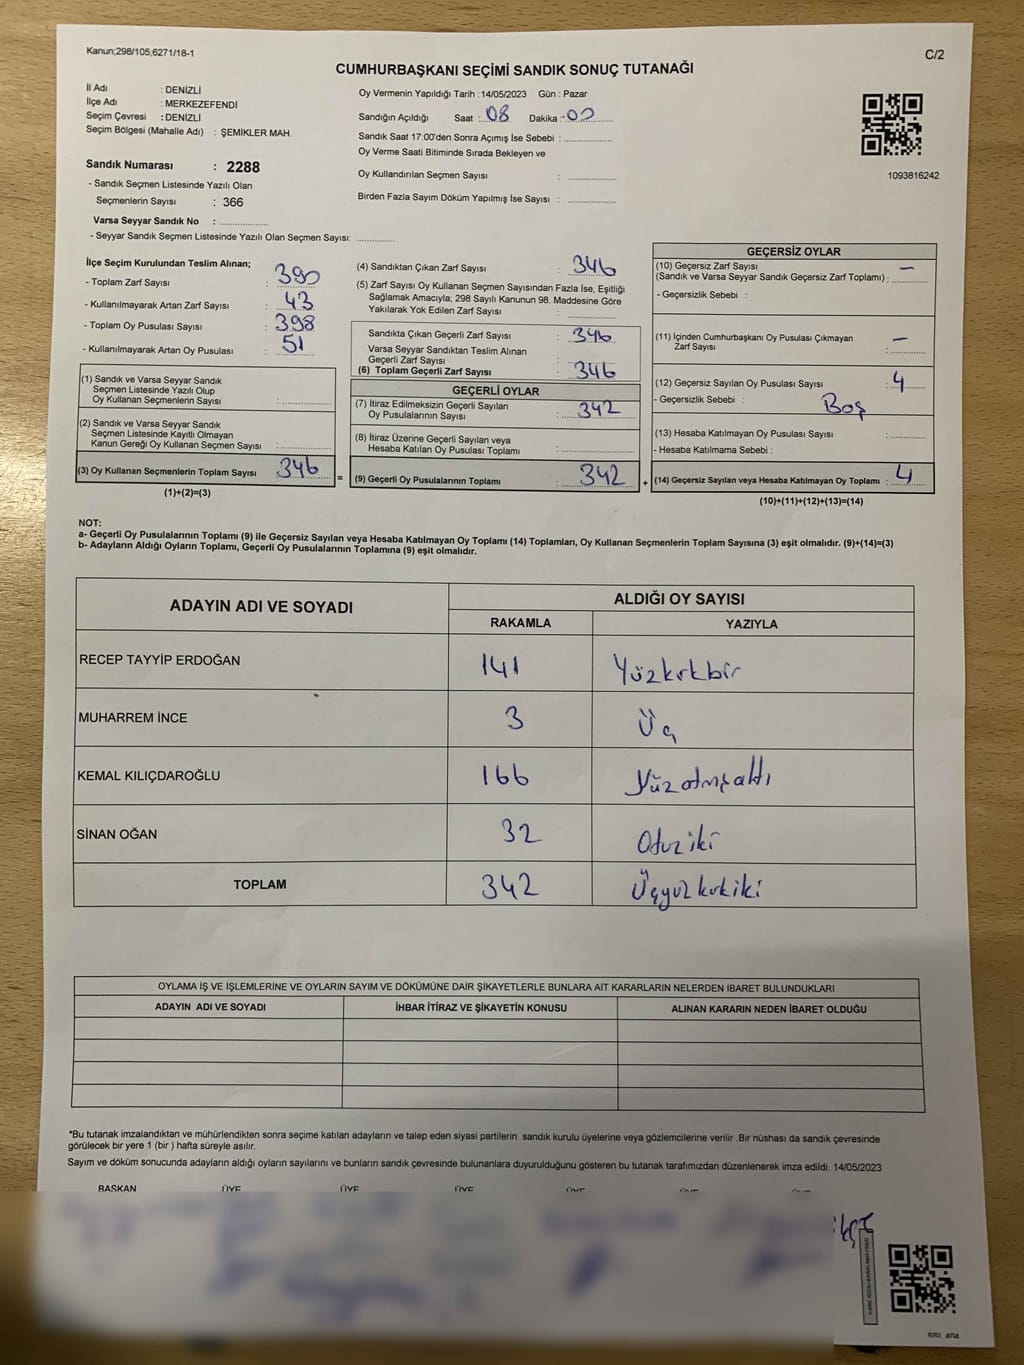 Kanun;298/105;6271/18-1
C/2
CUMHURBAŞKANI SEÇİMİ SANDIK SONUÇ TUTANAĞI
İl Adı : DENİZLİ
İlçe Adı : MERKEZEFENDİ
Seçim Çevresi : DENİZLİ
Seçim Bölgesi (Mahalle Adı) : ŞEMİKLER MAH.
Sandık Numarası : 2288
- Sandık Seçmen Listesinde Yazılı Olan
Seçmenlerin Sayısı : 366
Varsa Seyyar Sandık No :
- Seyyar Sandık Seçmen Listesinde Yazılı Olan Seçmen Sayısı:
Oy Vermenin Yapıldığı Tarih : 14/05/2023 Gün : Pazar
Sandığın Açıldığı Saat : 08 Dakika : 00
Sandık Saat 17:00'den Sonra Açımış İse Sebebi :
Oy Verme Saati Bitiminde Sırada Bekleyen ve
Oy Kullandırılan Seçmen Sayısı :
Birden Fazla Sayım Döküm Yapılmış İse Sayısı :
1093816242
İlçe Seçim Kurulundan Teslim Alınan;
- Toplam Zarf Sayısı : 390
- Kullanılmayarak Artan Zarf Sayısı : 43
- Toplam Oy Pusulası Sayısı : 398
- Kullanılmayarak Artan Oy Pusulası : 51
(1) Sandık ve Varsa Seyyar Sandık
Seçmen Listesinde Yazılı Olup
Oy Kullanan Seçmenlerin Sayısı :
(2) Sandık ve Varsa Seyyar Sandık
Seçmen Listesinde Kayıtlı Olmayan
Kanun Gereği Oy Kullanan Seçmen Sayısı :
(3) Oy Kullanan Seçmenlerin Toplam Sayısı : 346
(1)+(2)=(3)
=
(4) Sandıktan Çıkan Zarf Sayısı : 346
(5) Zarf Sayısı Oy Kullanan Seçmen Sayısından Fazla İse, Eşitliği
Sağlamak Amacıyla; 298 Sayılı Kanunun 98. Maddesine Göre
Yakılarak Yok Edilen Zarf Sayısı :
Sandıkta Çıkan Geçerli Zarf Sayısı : 346
Varsa Seyyar Sandıktan Teslim Alınan
Geçerli Zarf Sayısı :
(6) Toplam Geçerli Zarf Sayısı : 346
GEÇERLİ OYLAR
(7) İtiraz Edilmeksizin Geçerli Sayılan
Oy Pusulalarının Sayısı : 342
(8) İtiraz Üzerine Geçerli Sayılan veya
Hesaba Katılan Oy Pusulası Toplamı :
(9) Geçerli Oy Pusulalarının Toplamı : 342
+
GEÇERSİZ OYLAR
(10) Geçersiz Zarf Sayısı
(Sandık ve Varsa Seyyar Sandık Geçersiz Zarf Toplamı) : —
- Geçersizlik Sebebi :
(11) İçinden Cumhurbaşkanı Oy Pusulası Çıkmayan
Zarf Sayısı : —
(12) Geçersiz Sayılan Oy Pusulası Sayısı : 4
- Geçersizlik Sebebi : Boş
(13) Hesaba Katılmayan Oy Pusulası Sayısı :
- Hesaba Katılmama Sebebi :
(14) Geçersiz Sayılan veya Hesaba Katılmayan Oy Toplamı : 4
(10)+(11)+(12)+(13)=(14)
NOT:
a- Geçerli Oy Pusulalarının Toplamı (9) ile Geçersiz Sayılan veya Hesaba Katılmayan Oy Toplamı (14) Toplamları, Oy Kullanan Seçmenlerin Toplam Sayısına (3) eşit olmalıdır. (9)+(14)=(3)
b- Adayların Aldığı Oyların Toplamı, Geçerli Oy Pusulalarının Toplamına (9) eşit olmalıdır.
ADAYIN ADI VE SOYADI
ALDIĞI OY SAYISI
RAKAMLA YAZIYLA
RECEP TAYYİP ERDOĞAN 141 Yüzkırkbir
MUHARREM İNCE 3 Üç
KEMAL KILIÇDAROĞLU 166 Yüzatmışaltı
SİNAN OĞAN 32 Otuziki
TOPLAM 342 Üçyüzkırkiki
OYLAMA İŞ VE İŞLEMLERİNE VE OYLARIN SAYIM VE DÖKÜMÜNE DAİR ŞİKAYETLERLE BUNLARA AİT KARARLARIN NELERDEN İBARET BULUNDUKLARI
ADAYIN ADI VE SOYADI İHBAR İTİRAZ VE ŞİKAYETİN KONUSU ALINAN KARARIN NEDEN İBARET OLDUĞU
*Bu tutanak imzalandıktan ve mühürlendikten sonra seçime katılan adayların ve talep eden siyasi partilerin sandık kurulu üyelerine veya gözlemcilerine verilir .Bir nüshası da sandık çevresinde
görülecek bir yere 1 (bir ) hafta süreyle asılır.
Sayım ve döküm sonucunda adayların aldığı oyların sayılarını ve bunların sandık çevresinde bulunanlara duyurulduğunu gösteren bu tutanak tarafımızdan düzenlenerek imza edildi. 14/05/2023
BAŞKAN ÜYE ÜYE ÜYE ÜYE